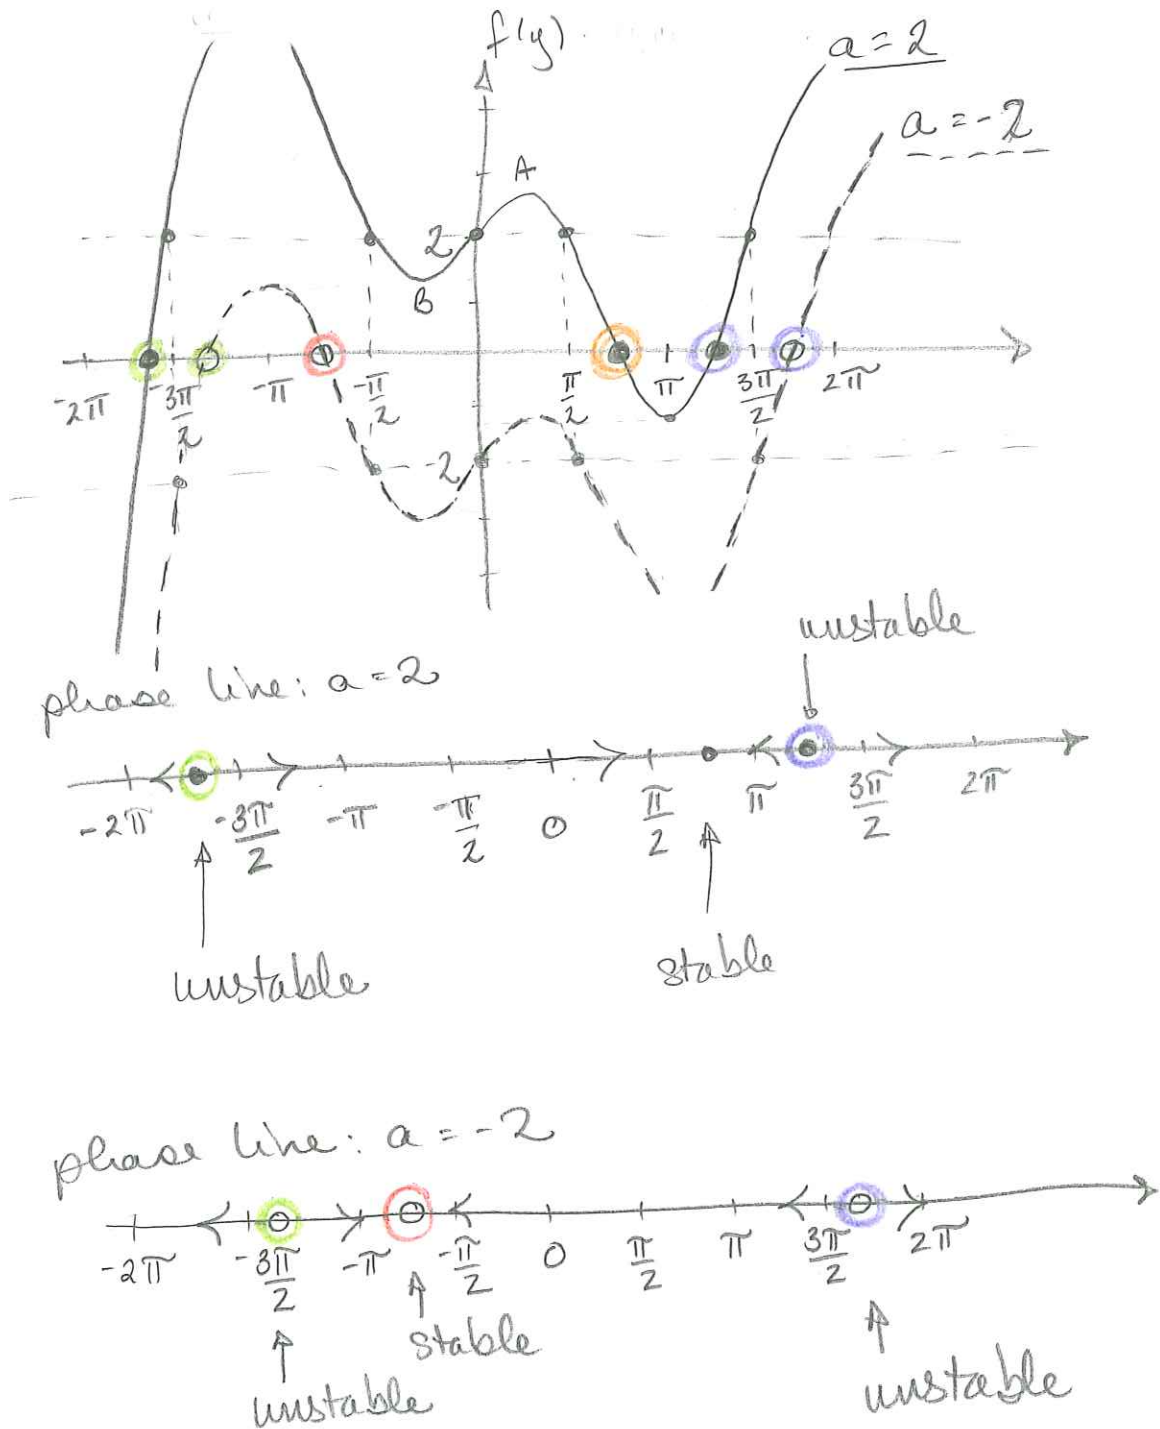 f(y)
a = 2
a = -2
A
2
B
-2π -3π/2 -π -π/2 π/2 π 3π/2 2π
-2
unstable
phase line: a = 2
-2π -3π/2 -π -π/2 0 π/2 π 3π/2 2π
unstable stable
phase line: a = -2
-2π -3π/2 -π -π/2 0 π/2 π 3π/2 2π
stable
unstable unstable